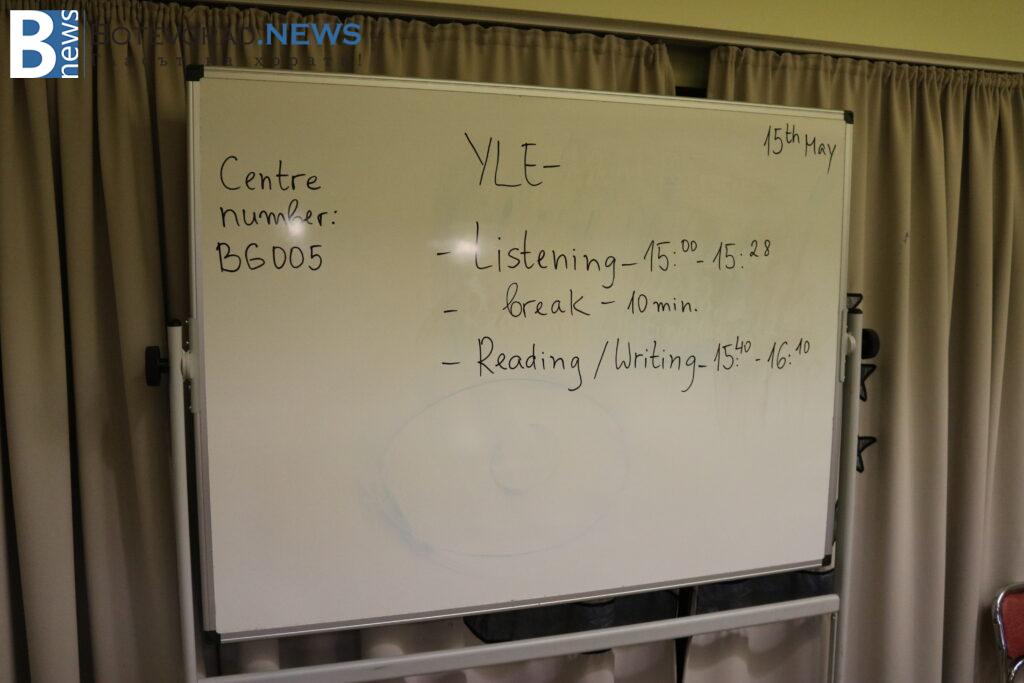 B news
BOTEVGRAD.NEWS
Гласът на хората!
15th May
YLE-
Centre
number:
BG005
- Listening - 15:00 - 15:28
- break - 10 min.
- Reading / Writing - 15:40 - 16:10